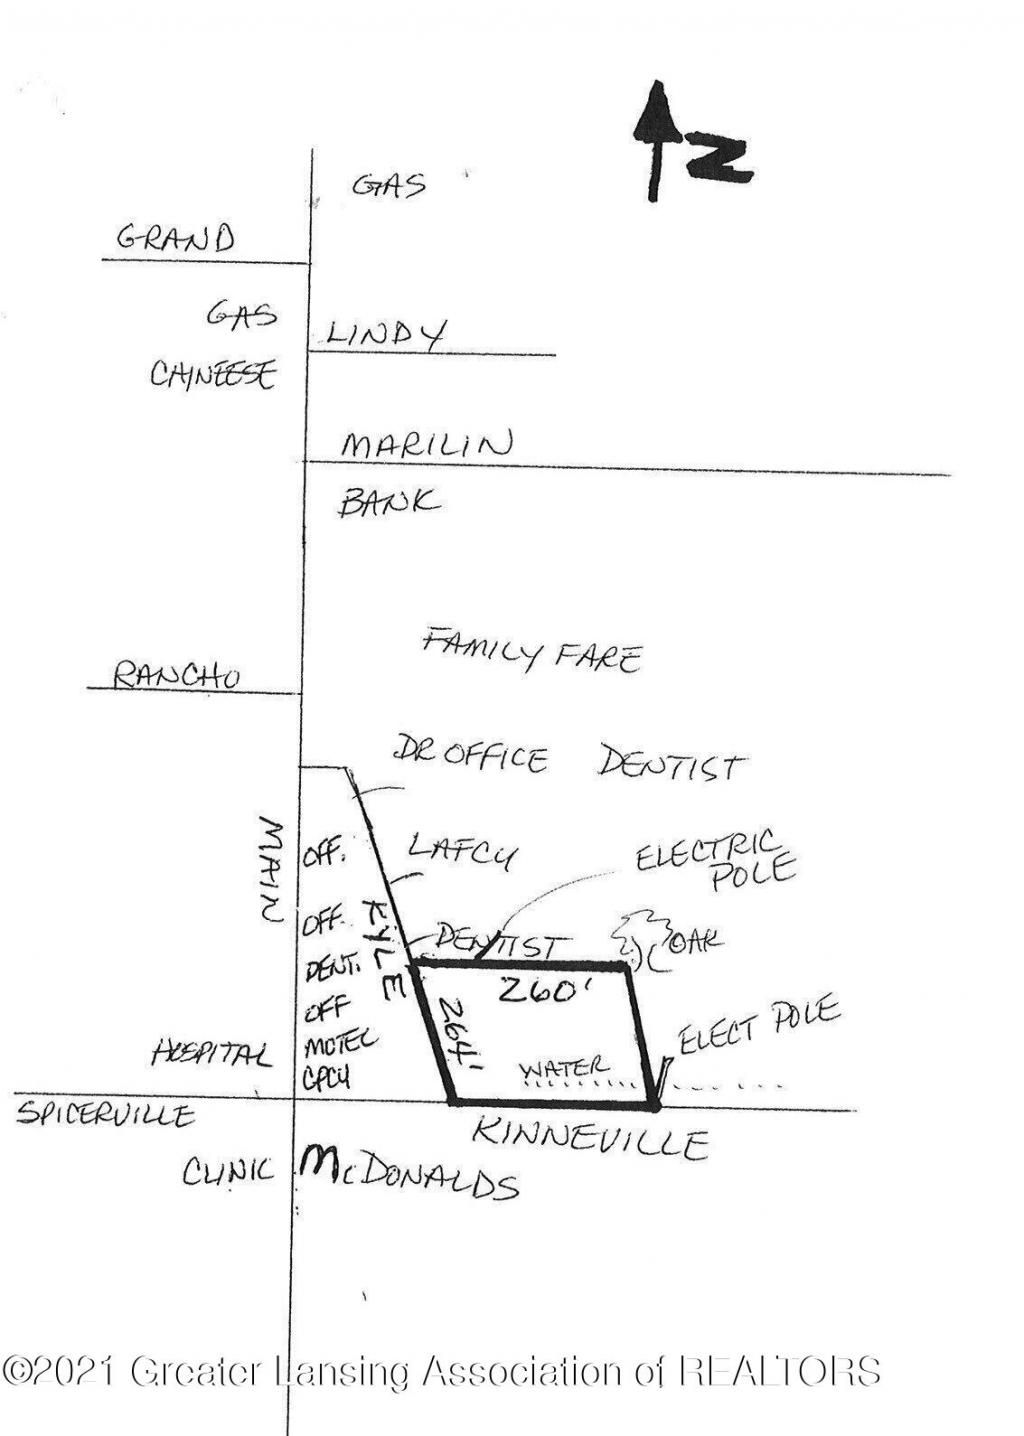 N
GAS
GRAND
GAS
LINDY
CHINEESE
MARILIN
BANK
FAMILY FARE
RANCHO
DR OFFICE DENTIST
MAIN
OFF.
LAFCU
ELECTRIC
POLE
OFF.
KYLE
DENTIST
OAK
DENT.
260'
OFF
264'
ELECT POLE
HOSPITAL
MOTEL
WATER
CPCU
SPICERVILLE
KINNEVILLE
CLINIC
McDONALDS
©2021 Greater Lansing Association of REALTORS